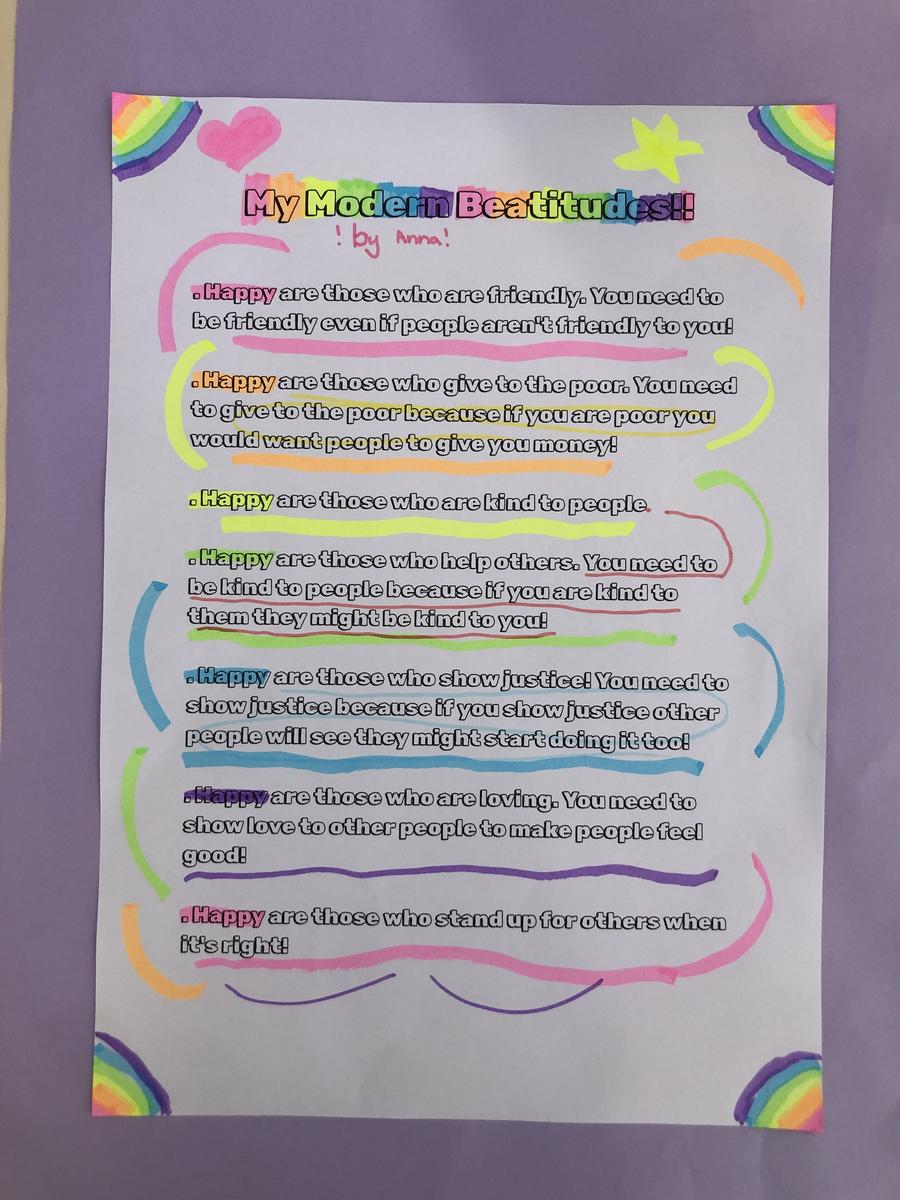 My Modern Beatitudes!!
! by Anna!
. Happy are those who are friendly. You need to
be friendly even if people aren't friendly to you!
. Happy are those who give to the poor. You need
to give to the poor because if you are poor you
would want people to give you money!
. Happy are those who are kind to people.
. Happy are those who help others. You need to
be kind to people because if you are kind to
them they might be kind to you!
. Happy are those who show justice! You need to
show justice because if you show justice other
people will see they might start doing it too!
. Happy are those who are loving. You need to
show love to other people to make people feel
good!
. Happy are those who stand up for others when
it's right!